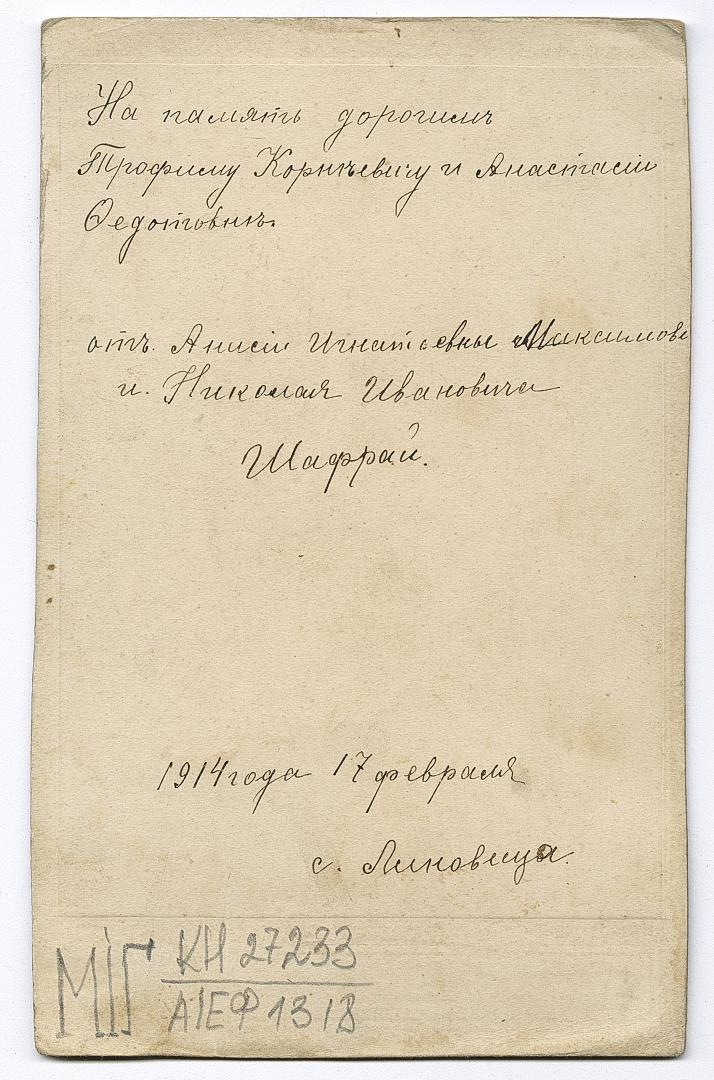 На память дорогимъ
Трофиму Корнѣевичу и Анастасіи
Ѳедотовнѣ.
отъ Анисіи Игнатьевны Максимове
и. Николая Ивановича
Шафрай.
1914 года 17 февраля
с. Линовица.
МІГ КН 27233
АІЕФ 1318